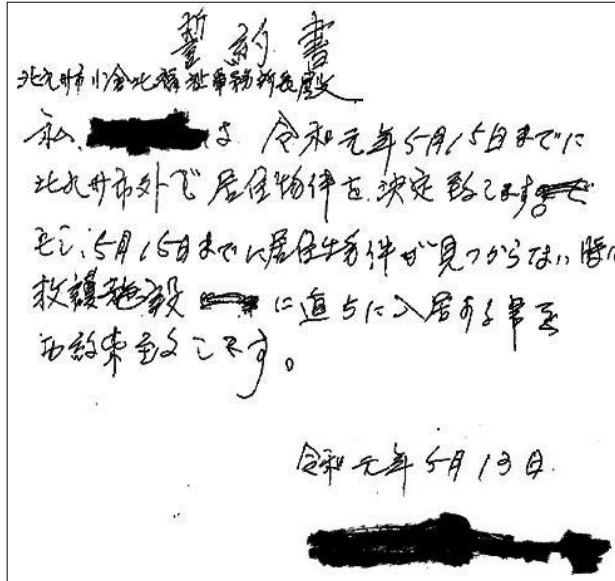 誓約書
北九州市小倉北福祉事務所長殿
私、は、令和元年5月15日までに
北九州市外で居住物件を決定致します。
もし、5月15日までに居住物件が見つからない時に
救護施設に直ちに入居する事を
お約束致します。
令和元年5月13日